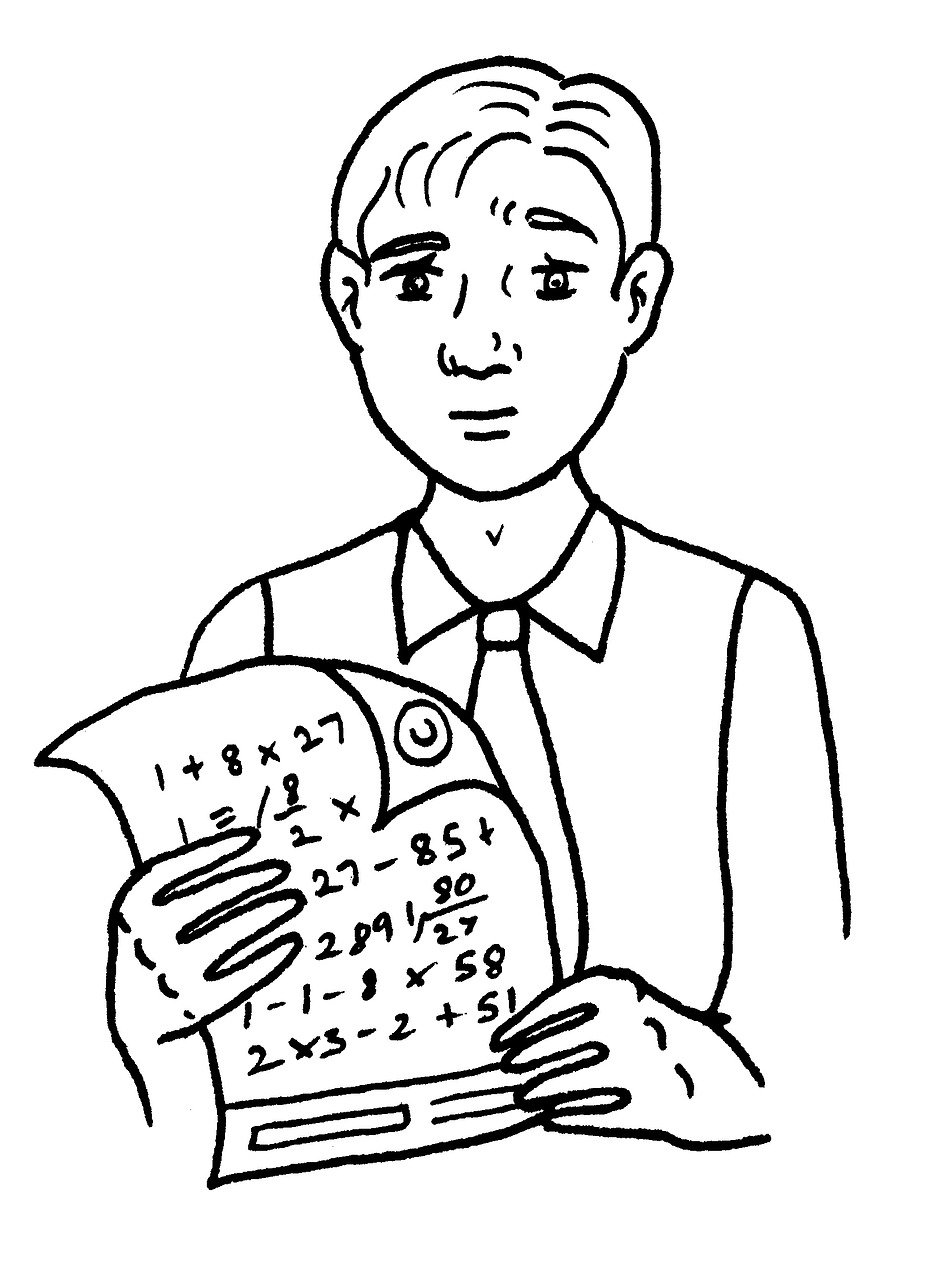 1 + 8 x 27
1 = / 8/2 x
27 - 85 +
289 1/ 80/27
1 - 1 - 8 x 58
2 x 3 - 2 + 51